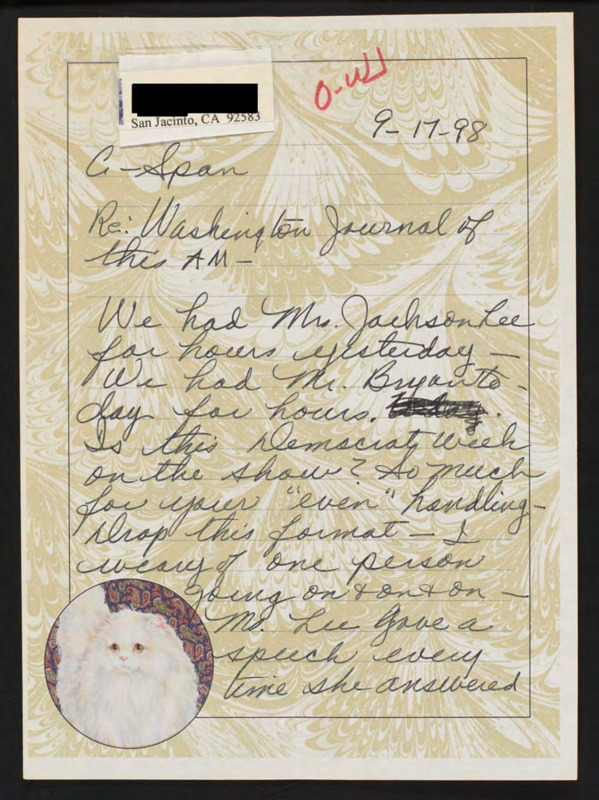 San Jacinto, CA 92583
9-17-98
C-Span
Re: Washington Journal of
this AM -
We had Mrs. Jackson Lee
for hours yesterday -
We had Mr. Bryant to-
day for hours.
Is this Democrat Week
on the show? So much
for your "even" handling -
Drop this format - I
weary of one person
going on & on & on -
Ms. Lee gave a
speech every
time she answered